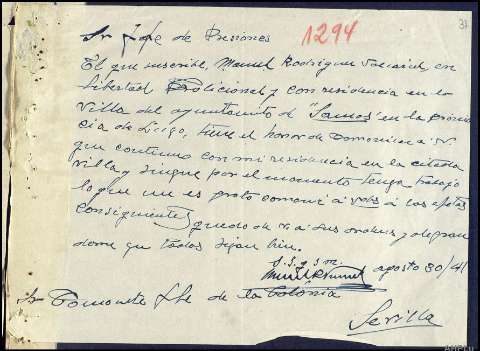 Sr Jefe de Presiones 1294
El que suscribe, Manuel Rodriguez en
libertad y con residencia en la
Villa del ayuntamiento de "Samos" en la Provin
cia de Lugo, tiene el honor de a V.
que continuo con mi residencia en la citada
Villa y sin que por el momento tenga trabajo
lo que me es grato a los efetos
consiguientes quedo de V. a sus ordenes y alegran
dome que todos sigan bien.
S. S. q. s. m.
agosto 30/41
Sr Jfe de la Colonia
Sevilla